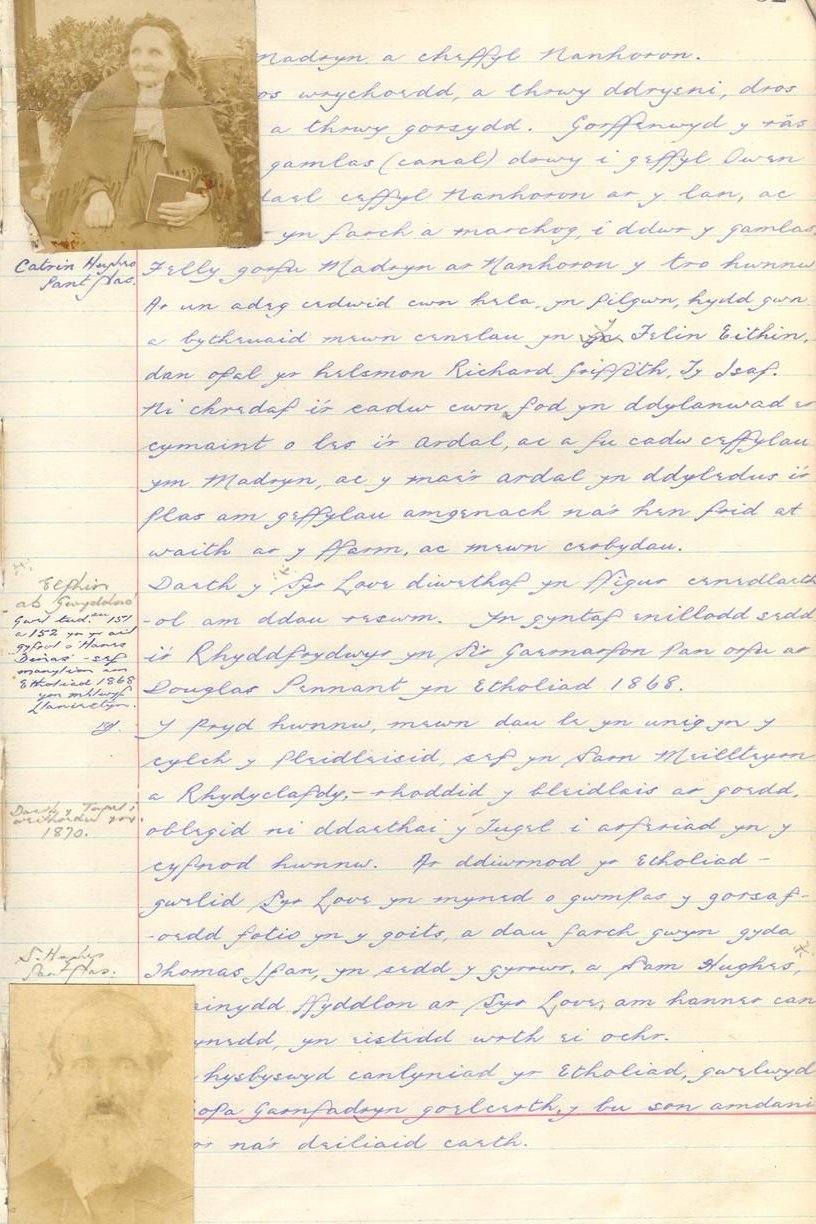 Madryn a cheffyl Nanhoron.
os wrychoedd, a thrwy ddrysni, dros
a thrwy gorsydd. Gorffenwyd y râs
gamlas (canal) drwy i geffyl Owen
dael ceffyl Nanhoron ar y lan, ac
yn farch a marchog, i ddwr y gamlas.
Catrin Hughes
Pant Glas.
Felly gorfu Madryn ar Nanhoron y tro hwnnw
Ar un adeg cedwid cwn hela, yn filgwn, hydd gwn
a bytheuaid mewn cenelau yn y Felin Eithin,
dan ofal yr helsmon Richard Griffith, Ty Isaf.
Ni chredaf i'r cadw cwn fod yn ddylanwad er
cymaint o les i'r ardal, ac a fu cadw ceffylau
ym Madryn, ac y mae'r ardal yn ddyledus i'r
Plas am geffylau amgenach na'r hen frid at
waith ar y fferm, ac mewn cerbydau.
Elphin
ab Gwyddno
Gwel tud. 151
a 152 yn yr ail
gyfrol o Hanes
Dinas - sef
manylion am
Etholiad 1868
ym mhlwyf
Llaniestyn.
Daeth y Syr Love diwethaf yn ffigur cenedlaeth
-ol am ddau reswm. Yn gyntaf enillodd sedd
i'r Rhyddfrydwyr yn Sir Gaernarfon pan orfu ar
Douglas Pennant yn Etholiad 1868.
Y pryd hwnnw, mewn dau le yn unig yn y
cylch y pleidleisid, sef yn Sarn Meillteyrn
a Rhydyclafdy, - rhoddid y bleidlais ar goedd,
Daeth y Tugel i
weithrediad yn
1870.
oblegid ni ddaethai y Tugel i arferiad yn y
cyfnod hwnnw. Ar ddiwrnod yr Etholiad -
gwelid Syr Love yn myned o gwmpas y gorsaf-
-oedd fotio yn y goits, a dau farch gwyn gyda
S. Hughes
Pant Glas.
Thomas Ifan, yn sedd y gyrrwr, a Sam Hughes,
ffyddlon ar Syr Love, am hanner can
mynedd, yn eistedd wrth ei ochr.
hysbyswyd canlyniad yr Etholiad, gwelwyd
gopa Garnfadryn goelcerth, y bu son amdani
na'r deiliaid caeth.